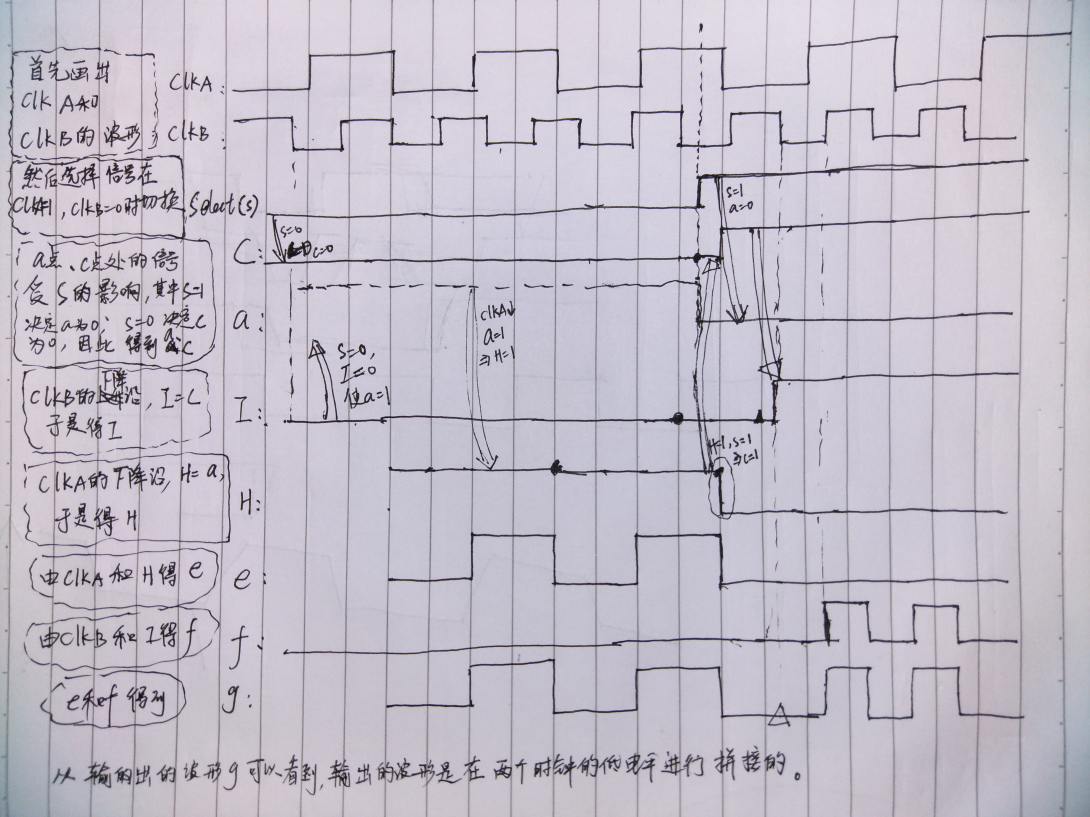 首先画出
ClkA和
ClkB的波形
ClkA:
ClkB:
然后选择信号在
ClkA=1,ClkB=0时切换
Select(s)
s=0
c=0
s=1
a=0
C:
a点、c点处的信号
受S的影响,其中S=1
决定a为0;s=0决定C
为0,因此得到a或C
a:
ClkA↓
a=1
⇒H=1
s=0,
I=0
使a=1
ClkB的下降沿,I=C
于是得I
I:
H=1,s=1
⇒c=1
ClkA的下降沿,H=a,
于是得H
H:
由ClkA和H得e
e:
由ClkB和I得f
f:
e和f得到
g:
从输出的波形g可以看到,输出的波形是在两个时钟的低电平进行拼接的。